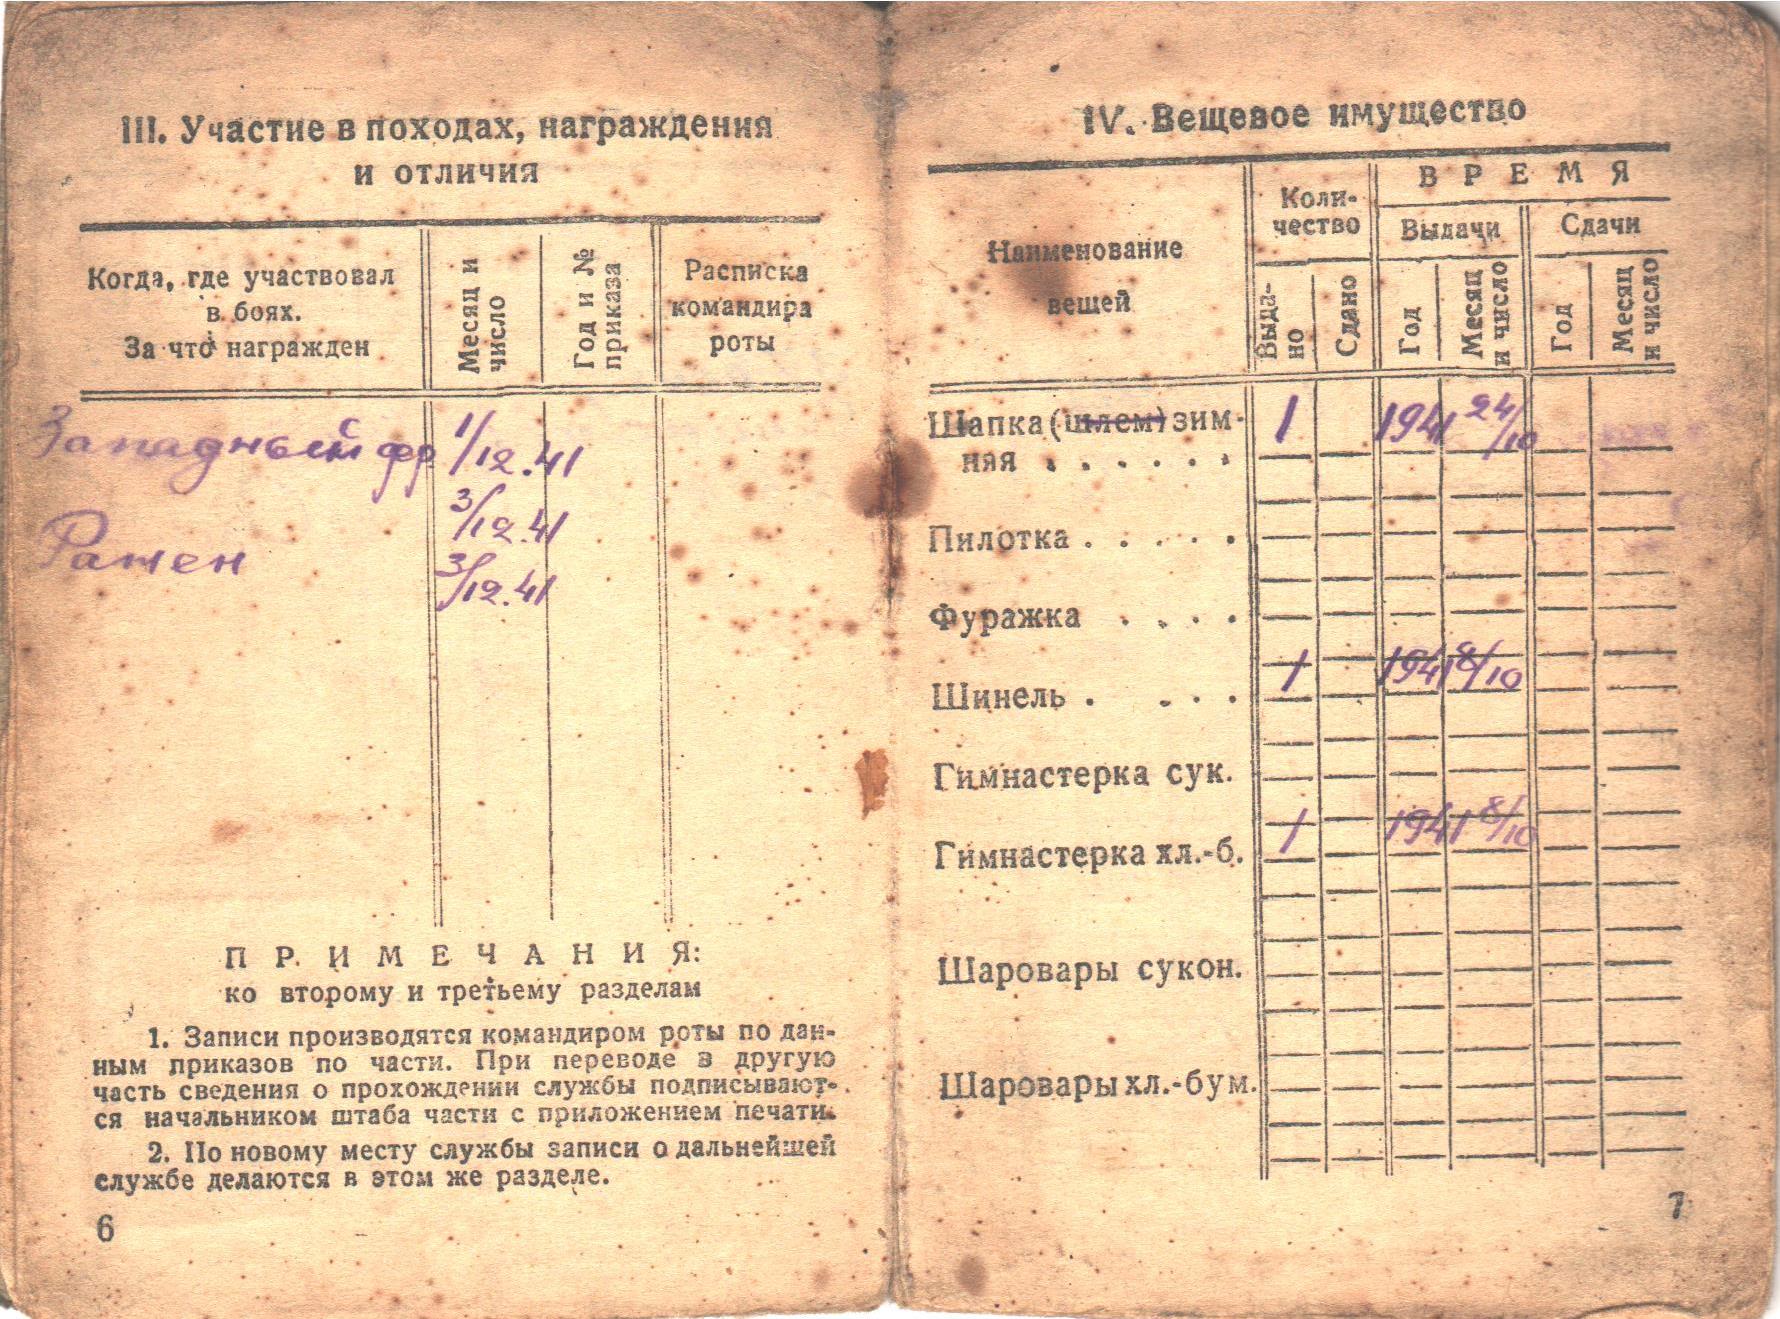 III. Участие в походах, награждения
и отличия
Когда, где участвовал
в боях.
За что награжден
Месяц и
число
Год и №
приказа
Расписка
командира
роты
Западный фр
с 1/12.41
3/12.41
Ранен
3/12.41
П Р И М Е Ч А Н И Я:
ко второму и третьему разделам
1. Записи производятся командиром роты по дан-
ным приказов по части. При переводе в другую
часть сведения о прохождении службы подписывают-
ся начальником штаба части с приложением печати.
2. По новому месту службы записи о дальнейшей
службе делаются в этом же разделе.
6
IV. Вещевое имущество
Наименование
вещей
Коли-
чество
В Р Е М Я
Выдачи
Сдачи
Выда-
но
Сдано
Год
Месяц
и число
Год
Месяц
и число
Шапка (шлем) зим- 1 1941 24/10
няя . . . . . .
Пилотка . . . . .
Фуражка . . . .
Шинель . . . . 1 1941 8/10
Гимнастерка сук.
Гимнастерка хл.-б. 1 1941 8/10
Шаровары сукон.
Шаровары хл.-бум.
7